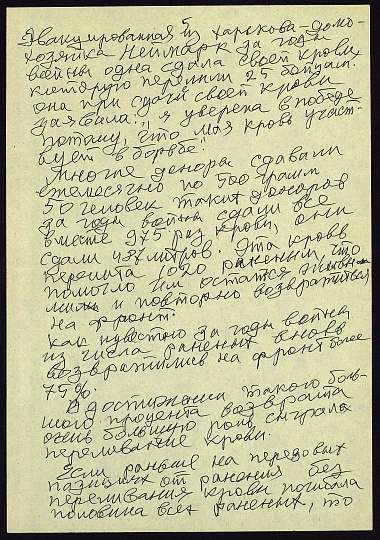 5
Эвакуированная из Харькова – домо-
хозяйка Неймарк за годы
войны одна сдала своей крови
которую перелили 25 бойцам.
она при сдачи своей крови
заявила: "я уверена в победе
потому, что моя кровь участ-
вует в борьбе".
Многие доноры сдавали
ежемесячно по 500 грамм
50 человек таких доноров
за годы войны сдали все
вместе 975 раз крови, они
сдали 487 литров. Эта кровь
перелита 1020 раненым, что
помогло им остатся живы-
ми и повторно возвратиться
на фронт.
Как известно за годы войны
из числа раненых вновь
возвратились на фронт более
75%.
В достижении такого боль-
шого процента возврата
очень большую роль сыграла
переливание крови.
Если раньше на передовых
позициях от ранения без
переливания крови погибала
половина всех раненых, то